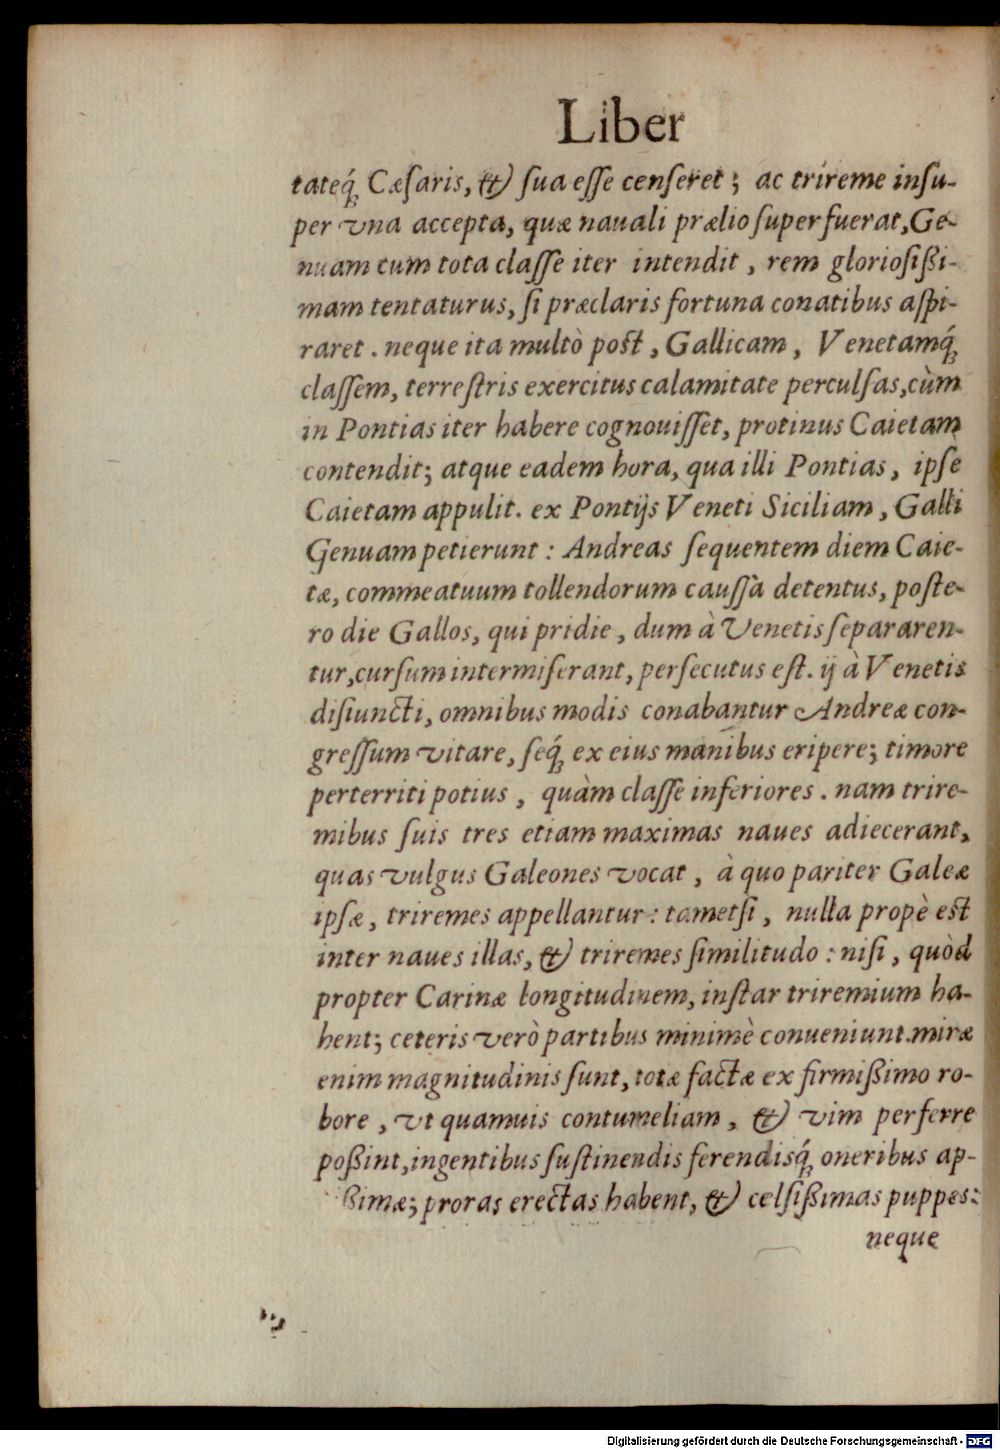 Liber
tateq́ꝫ Cæſaris, & ſua eſſe cenſeret; ac trireme inſu-
per vna accepta, quæ nauali prælio ſuperfuerat, Ge-
nuam cum tota claſſe iter intendit, rem glorioſißi-
mam tentaturus, ſi præclaris fortuna conatibus aſpi-
raret. neque ita multò poſt, Gallicam, Venetamq́ꝫ
claſſem, terreſtris exercitus calamitate perculſas, cùm
in Pontias iter habere cognouiſſet, protinus Caietam
contendit; atque eadem hora, qua illi Pontias, ipſe
Caietam appulit. ex Pontijs Veneti Siciliam, Galli
Genuam petierunt: Andreas ſequentem diem Caie-
tæ, commeatuum tollendorum cauſſa detentus, poſte-
ro die Gallos, qui pridie, dum à Venetis ſepararen-
tur, curſum intermiſerant, perſecutus eſt. ij à Venetis
diſiuncti, omnibus modis conabantur Andreæ con-
greſſum vitare, ſeq́ꝫ ex eius manibus eripere; timore
perterriti potius, quàm claſſe inferiores. nam trire-
mibus ſuis tres etiam maximas naues adiecerant,
quas vulgus Galeones vocat, à quo pariter Galeæ
ipſæ, triremes appellantur: tametſi, nulla propè eſt
inter naues illas, & triremes ſimilitudo: niſi, quòd
propter Carinæ longitudinem, inſtar triremium ha-
bent; ceteris verò partibus minimè conueniunt. miræ
enim magnitudinis ſunt, totæ factæ ex firmißimo ro-
bore, vt quamuis contumeliam, & vim perferre
poßint, ingentibus ſuſtinendis ferendisq́ꝫ oneribus ap-
ßimæ; proras erectas habent, & celſißimas puppes:
neque
Digitalisierung gefördert durch die Deutsche Forschungsgemeinschaft - DFG